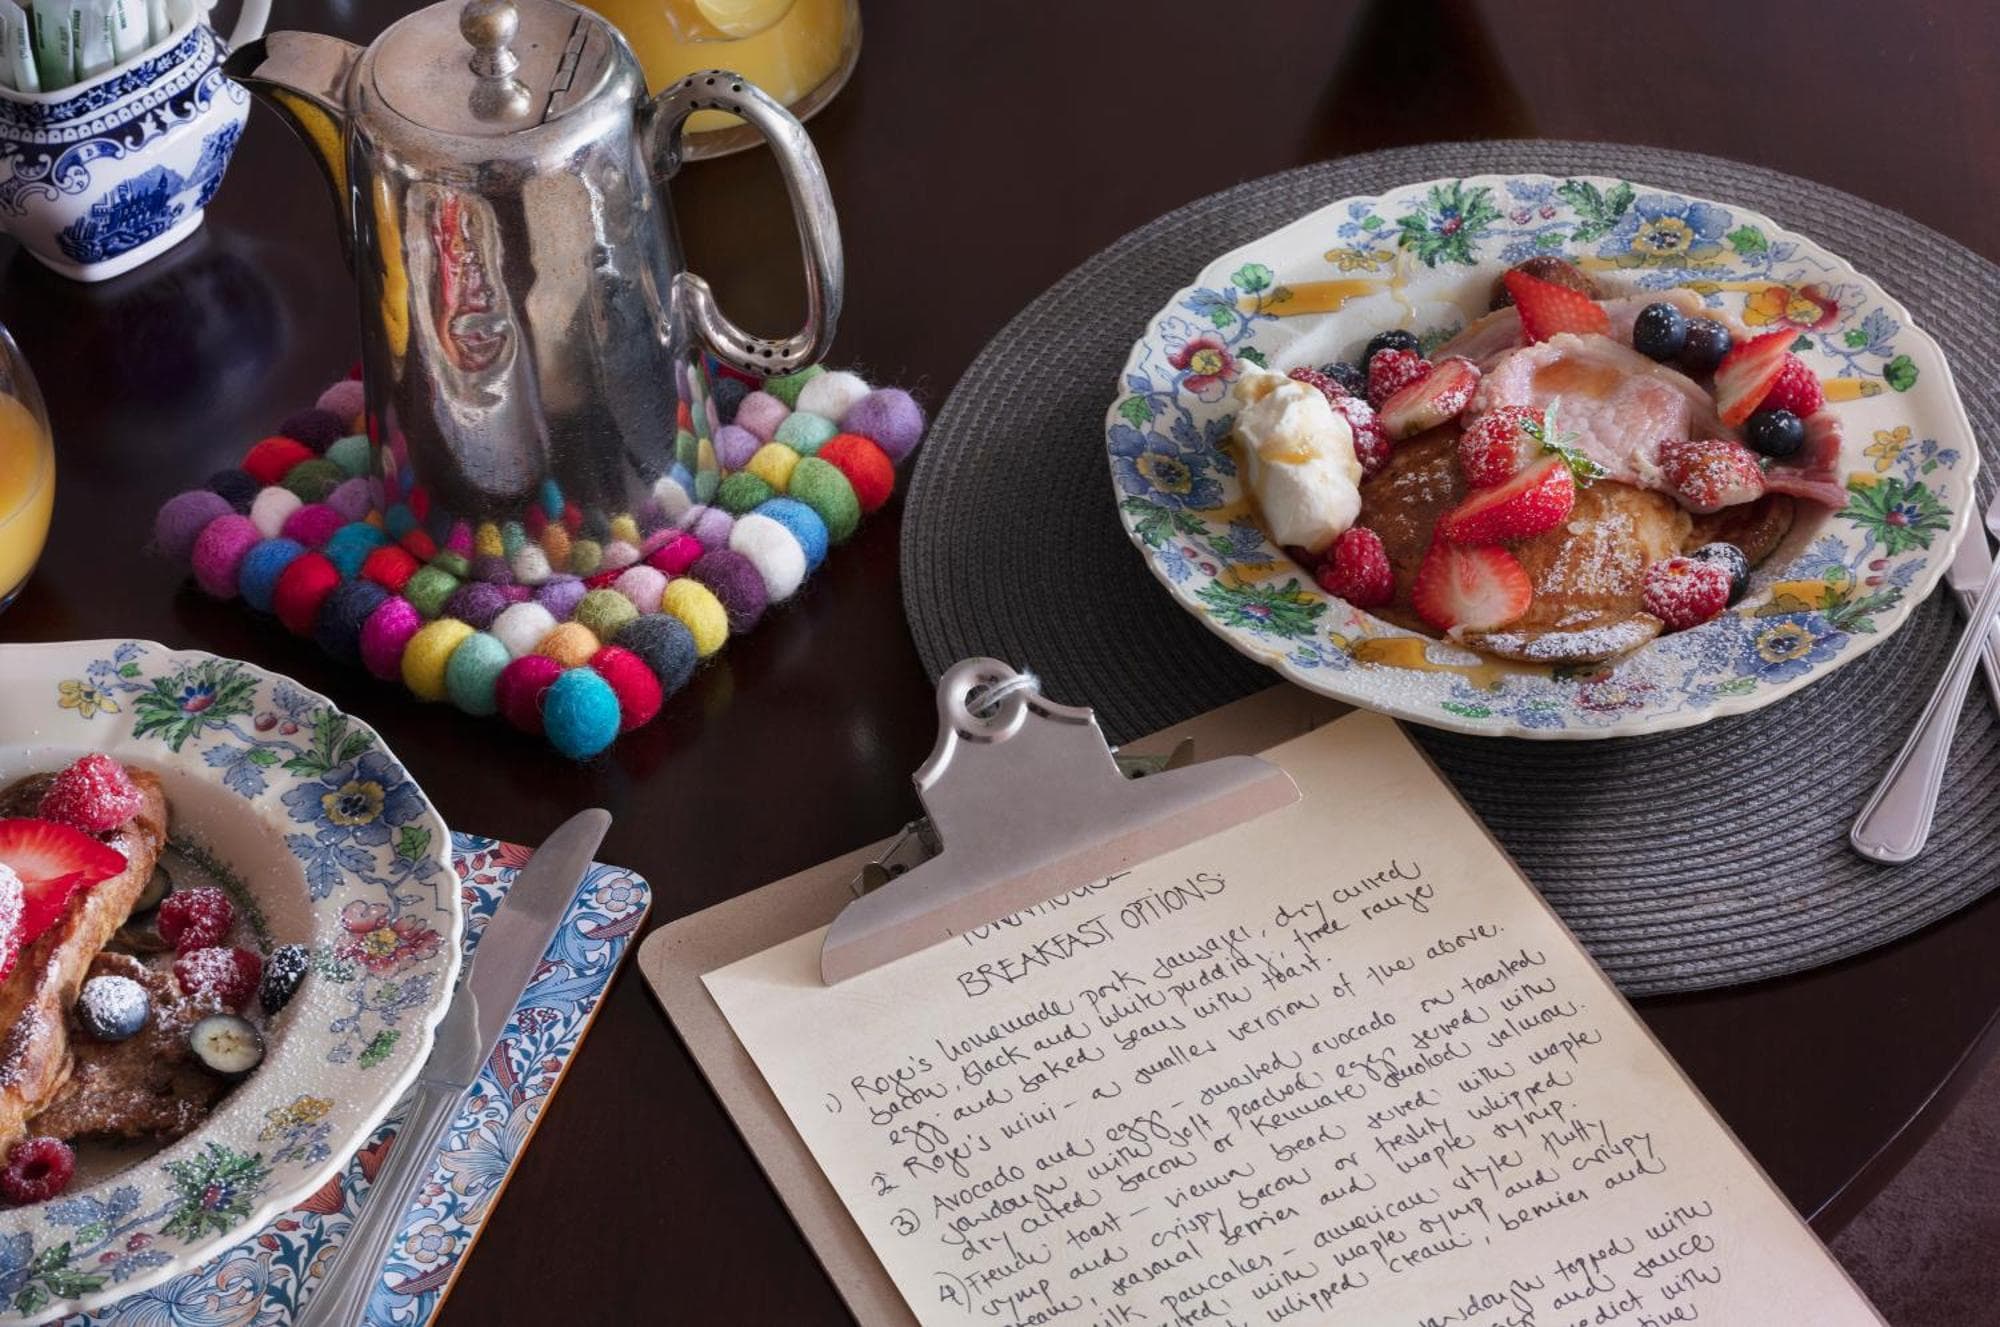 TOWNHOUSE
BREAKFAST OPTIONS:
1) Roze's homemade pork sausages, dry cured
bacon, black and white pudding, free range
egg and baked beans with toast.
2 Roze's mini - a smaller version of the above.
3) Avocado and eggs - smashed avocado on toasted
sourdough with soft poached eggs served with
dry cured bacon or Kenmare smoked salmon.
4) French toast - vienna bread served with maple
syrup and crispy bacon or freshly whipped
cream, seasonal berries and maple syrup.
milk pancakes - american style fluffy
with maple syrup and crispy
whipped cream, berries and
sourdough topped with
and sauce
with